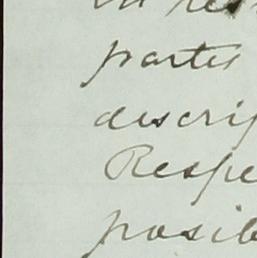 parties
discrip
Respe
posit